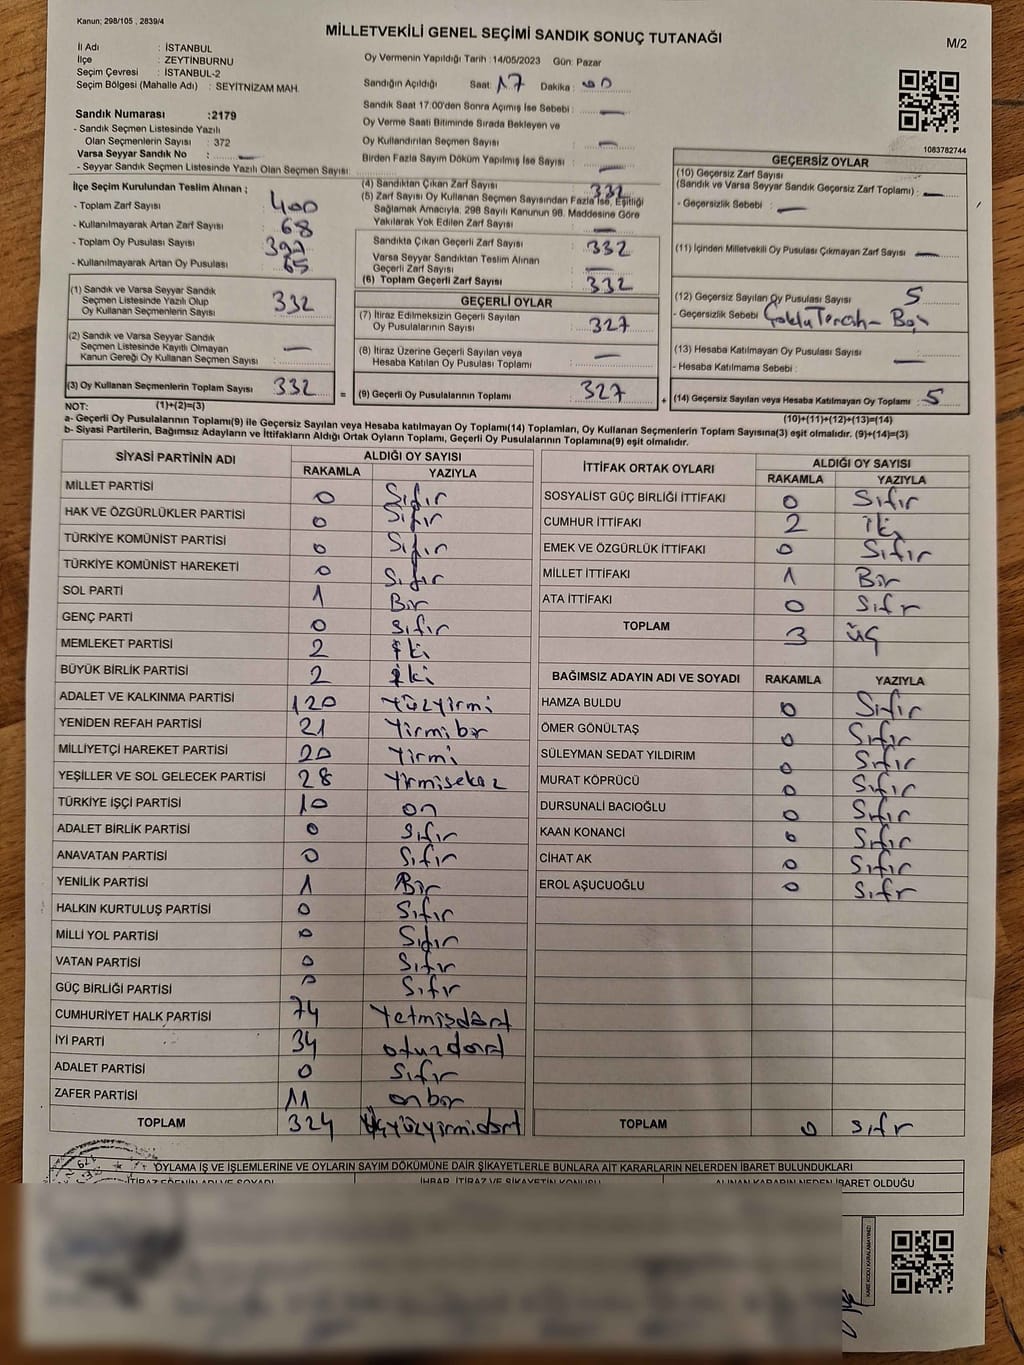 Kanun; 298/105 , 2839/4
MİLLETVEKİLİ GENEL SEÇİMİ SANDIK SONUÇ TUTANAĞI
M/2
İl Adı : İSTANBUL
İlçe : ZEYTİNBURNU
Seçim Çevresi : İSTANBUL-2
Seçim Bölgesi (Mahalle Adı) : SEYİTNİZAM MAH.
Oy Vermenin Yapıldığı Tarih : 14/05/2023 Gün: Pazar
Sandığın Açıldığı Saat: 17 Dakika: 00
Sandık Saat 17:00'den Sonra Açımış İse Sebebi : —
Oy Verme Saati Bitiminde Sırada Bekleyen ve
Oy Kullandırılan Seçmen Sayısı : —
Birden Fazla Sayım Döküm Yapılmış İse Sayısı : —
Sandık Numarası :2179
- Sandık Seçmen Listesinde Yazılı
Olan Seçmenlerin Sayısı : 372
Varsa Seyyar Sandık No : —
- Seyyar Sandık Seçmen Listesinde Yazılı Olan Seçmen Sayısı:
1083782744
İlçe Seçim Kurulundan Teslim Alınan ;
- Toplam Zarf Sayısı : 400
- Kullanılmayarak Artan Zarf Sayısı : 68
- Toplam Oy Pusulası Sayısı :
- Kullanılmayarak Artan Oy Pusulası : 65
(1) Sandık ve Varsa Seyyar Sandık
Seçmen Listesinde Yazılı Olup
Oy Kullanan Seçmenlerin Sayısı : 332
(2) Sandık ve Varsa Seyyar Sandık
Seçmen Listesinde Kayıtlı Olmayan
Kanun Gereği Oy Kullanan Seçmen Sayısı : —
(3) Oy Kullanan Seçmenlerin Toplam Sayısı : 332 =
(4) Sandıktan Çıkan Zarf Sayısı : 332
(5) Zarf Sayısı Oy Kullanan Seçmen Sayısından Fazla İse, Eşitliği
Sağlamak Amacıyla, 298 Sayılı Kanunun 98. Maddesine Göre
Yakılarak Yok Edilen Zarf Sayısı : —
Sandıkta Çıkan Geçerli Zarf Sayısı : 332
Varsa Seyyar Sandıktan Teslim Alınan
Geçerli Zarf Sayısı : —
(6) Toplam Geçerli Zarf Sayısı : 332
GEÇERLİ OYLAR
(7) İtiraz Edilmeksizin Geçerli Sayılan
Oy Pusulalarının Sayısı : 327
(8) İtiraz Üzerine Geçerli Sayılan veya
Hesaba Katılan Oy Pusulası Toplamı : —
(9) Geçerli Oy Pusulalarının Toplamı : 327 +
GEÇERSİZ OYLAR
(10) Geçersiz Zarf Sayısı
(Sandık ve Varsa Seyyar Sandık Geçersiz Zarf Toplamı) : —
- Geçersizlik Sebebi : —
(11) İçinden Milletvekili Oy Pusulası Çıkmayan Zarf Sayısı : —
(12) Geçersiz Sayılan Oy Pusulası Sayısı : 5
- Geçersizlik Sebebi : Çoklu Tercih - Boş
(13) Hesaba Katılmayan Oy Pusulası Sayısı : —
- Hesaba Katılmama Sebebi :
(14) Geçersiz Sayılan veya Hesaba Katılmayan Oy Toplamı : 5
NOT: (1)+(2)=(3)
(10)+(11)+(12)+(13)=(14)
a- Geçerli Oy Pusulasının Toplamı(9) ile Geçersiz Sayılan veya Hesaba katılmayan Oy Toplamı(14) Toplamları, Oy Kullanan Seçmenlerin Toplam Sayısına(3) eşit olmalıdır. (9)+(14)=(3)
b- Siyasi Partilerin, Bağımsız Adayların ve İttifakların Aldığı Ortak Oyların Toplamı, Geçerli Oy Pusulalarının Toplamına(9) eşit olmalıdır.
SİYASİ PARTİNİN ADI ALDIĞI OY SAYISI
RAKAMLA YAZIYLA
MİLLET PARTİSİ 0 Sıfır
HAK VE ÖZGÜRLÜKLER PARTİSİ 0 Sıfır
TÜRKİYE KOMÜNİST PARTİSİ 0 Sıfır
TÜRKİYE KOMÜNİST HAREKETİ 0 Sıfır
SOL PARTİ 1 Bir
GENÇ PARTİ 0 sıfır
MEMLEKET PARTİSİ 2 iki
BÜYÜK BİRLİK PARTİSİ 2 iki
ADALET VE KALKINMA PARTİSİ 120 Yüzyirmi
YENİDEN REFAH PARTİSİ 21 Yirmibir
MİLLİYETÇİ HAREKET PARTİSİ 20 Yirmi
YEŞİLLER VE SOL GELECEK PARTİSİ 28 Yirmisekiz
TÜRKİYE İŞÇİ PARTİSİ 10 on
ADALET BİRLİK PARTİSİ 0 Sıfır
ANAVATAN PARTİSİ 0 Sıfır
YENİLİK PARTİSİ 1 Bir
HALKIN KURTULUŞ PARTİSİ 0 Sıfır
MİLLİ YOL PARTİSİ 0 Sıfır
VATAN PARTİSİ 0 Sıfır
GÜÇ BİRLİĞİ PARTİSİ 0 Sıfır
CUMHURİYET HALK PARTİSİ 74 Yetmişdört
İYİ PARTİ 34 otuzdört
ADALET PARTİSİ 0 Sıfır
ZAFER PARTİSİ 11 onbir
TOPLAM 324 Üçyüzyirmidört
İTTİFAK ORTAK OYLARI ALDIĞI OY SAYISI
RAKAMLA YAZIYLA
SOSYALİST GÜÇ BİRLİĞİ İTTİFAKI 0 Sıfır
CUMHUR İTTİFAKI 2 iki
EMEK VE ÖZGÜRLÜK İTTİFAKI 0 Sıfır
MİLLET İTTİFAKI 1 Bir
ATA İTTİFAKI 0 Sıfır
TOPLAM 3 üç
BAĞIMSIZ ADAYIN ADI VE SOYADI RAKAMLA YAZIYLA
HAMZA BULDU 0 Sıfır
ÖMER GÖNÜLTAŞ 0 Sıfır
SÜLEYMAN SEDAT YILDIRIM 0 Sıfır
MURAT KÖPRÜCÜ 0 Sıfır
DURSUNALİ BACIOĞLU 0 Sıfır
KAAN KONANCİ 0 Sıfır
CİHAT AK 0 Sıfır
EROL AŞUCUOĞLU 0 Sıfır
TOPLAM 0 sıfır
OYLAMA İŞ VE İŞLEMLERİNE VE OYLARIN SAYIM DÖKÜMÜNE DAİR ŞİKAYETLERLE BUNLARA AİT KARARLARIN NELERDEN İBARET BULUNDUKLARI
İTİRAZ EDENİN ADI VE SOYADI İHBAR, İTİRAZ VE ŞİKAYETİN KONUSU ALINAN KARARIN NEDEN İBARET OLDUĞU